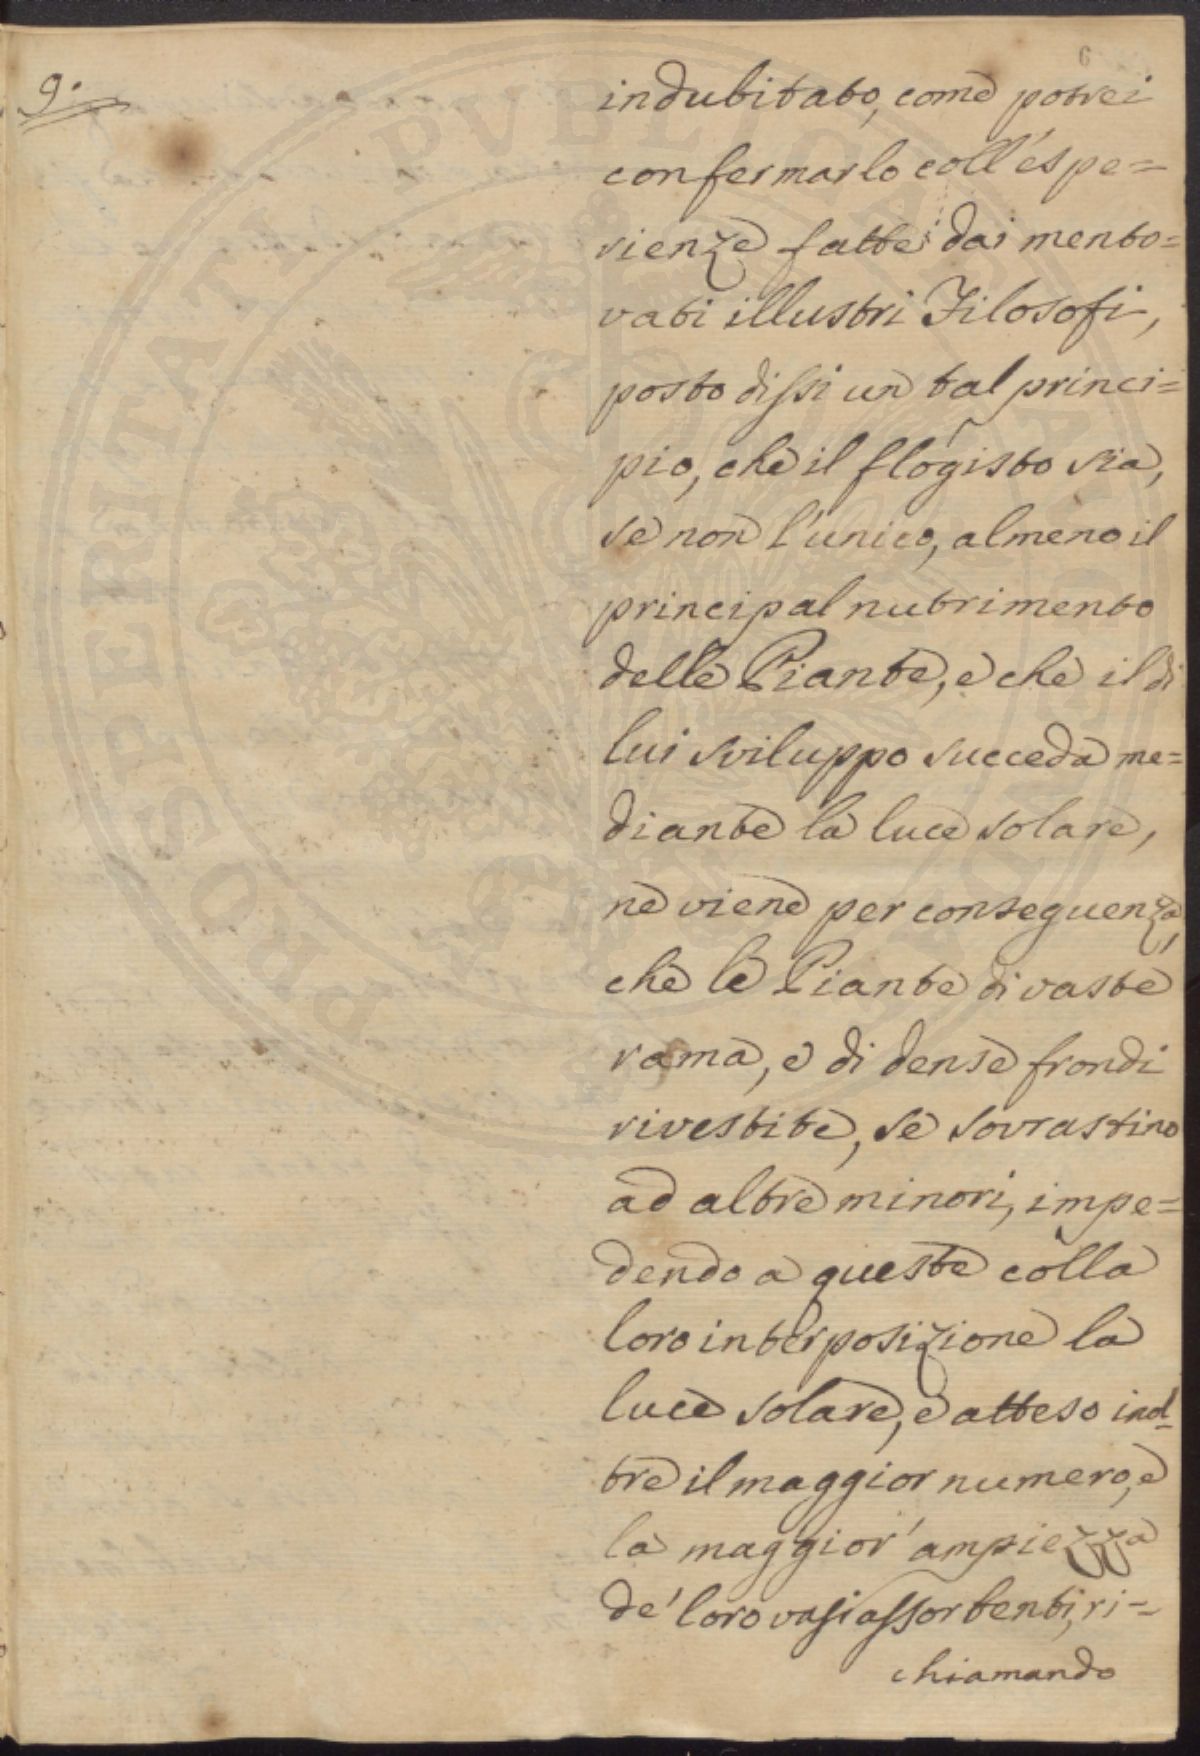 9.
6
indubitato, come potrei
confermarlo coll'espe=
rienze fatte dai mento=
vati illustri Filosofi,
posto dissi un tal princi=
pio, che il flogisto sia,
se non l'unico, almeno il
principal nutrimento
delle Piante, e che il di
lui sviluppo succeda me=
diante la luce solare,
ne viene per conseguenza,
che le Piante di vaste
rama, e di dense frondi
rivestite, se sovrastino
ad altre minori, impe=
dendo a queste colla
loro interposizione la
luce solare, e atteso inol=
tre il maggior numero, e
la maggior' ampiezza
de' loro vasi assorbenti, ri=
chiamando
PROSPERITATI PVBLICAE AVGENDAE